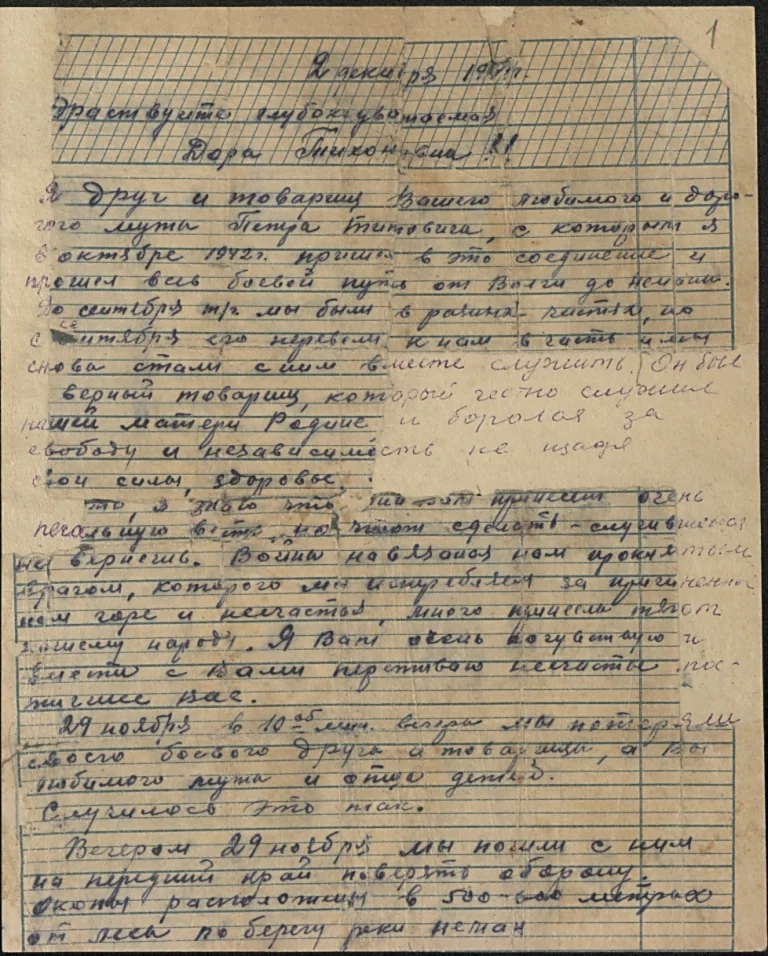 1
2 декабря 19
Здраствуйте глубокоуважаемая
Дора Тихоновна !!
Я друг и товарищ Вашего любимого и доро-
гого мужа Петра Титовича, с которым я
в октябре 1942г. пришел в это соединение и
прошел весь боевой путь от Волги до немана.
До сентября т/г. мы были в разных частях, но
с сентября его перевели к нам в часть и мы
снова стали с ним вместе служить. Он был
верный товарищ, который честно служил
нашей матери Родине и боролся за
свободу и независимость не щадя
свои силы, здоровье.
то, я знаю что принесет очень
печальную весть, но что ж сделать - случившееся
не вернешь. Война навязаная нам проклятым
врагом, которого мы истребляем за причиненное
нам горе и несчастья, много принесла тягот
нашему народу. Я Вам очень сочувствую и
вместе с Вами переживаю несчастье пос-
тигшее Вас.
29 ноября в 10 мин. вечера мы потеряли
своего боевого друга и товарища, а Вы
любимого мужа и отца детей.
Случилось это так.
Вечером 29 ноября мы пошли с ним
на передний край поверять оборону.
Окопы расположены в 500-600 метрах
от леса по берегу реки неман